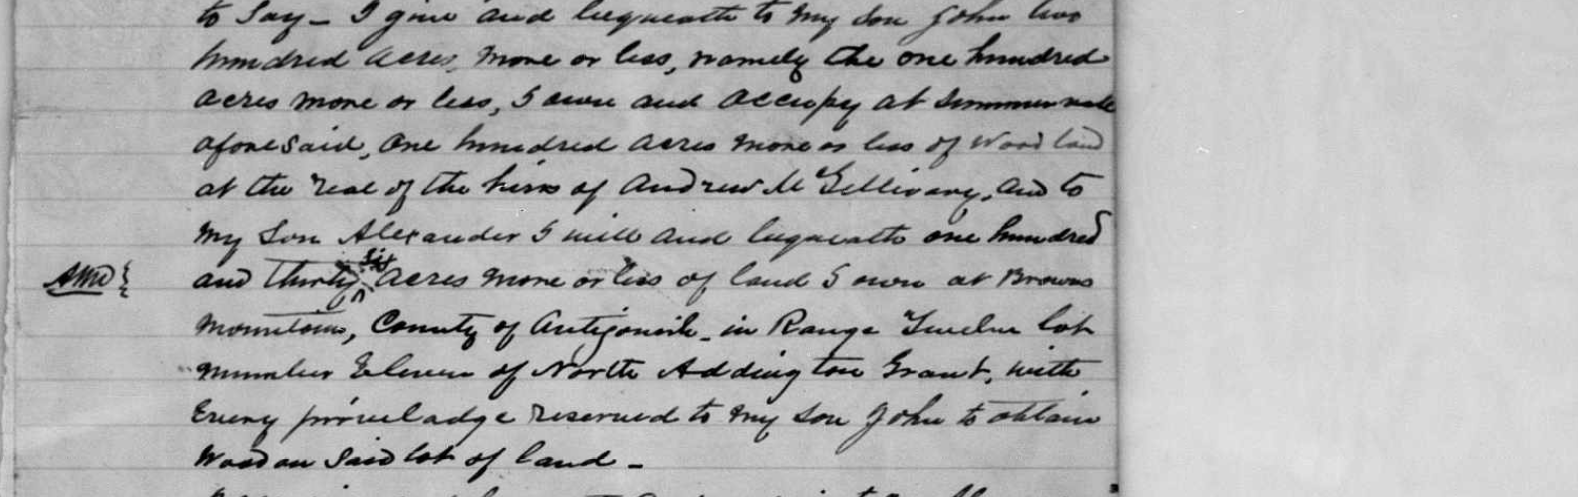 to Say - I give and bequeath to my Son John two
hundred acres, more or less, namely the one hundred
acres more or less, I own and occupy at Summervale
aforesaid, One hundred acres more or less of Wood land
at the real of the heirs of Andrew McGillivary, and to
my Son Alexander I will and bequeath one hundred
and thirty six acres more or less of land I own at Browns
Mountain, County of Antigonish - in Range Twelve lot
number Eleven of North Addington Grant, with
Every priveladge reserved to my Son John to obtain
Wood on Said lot of land -